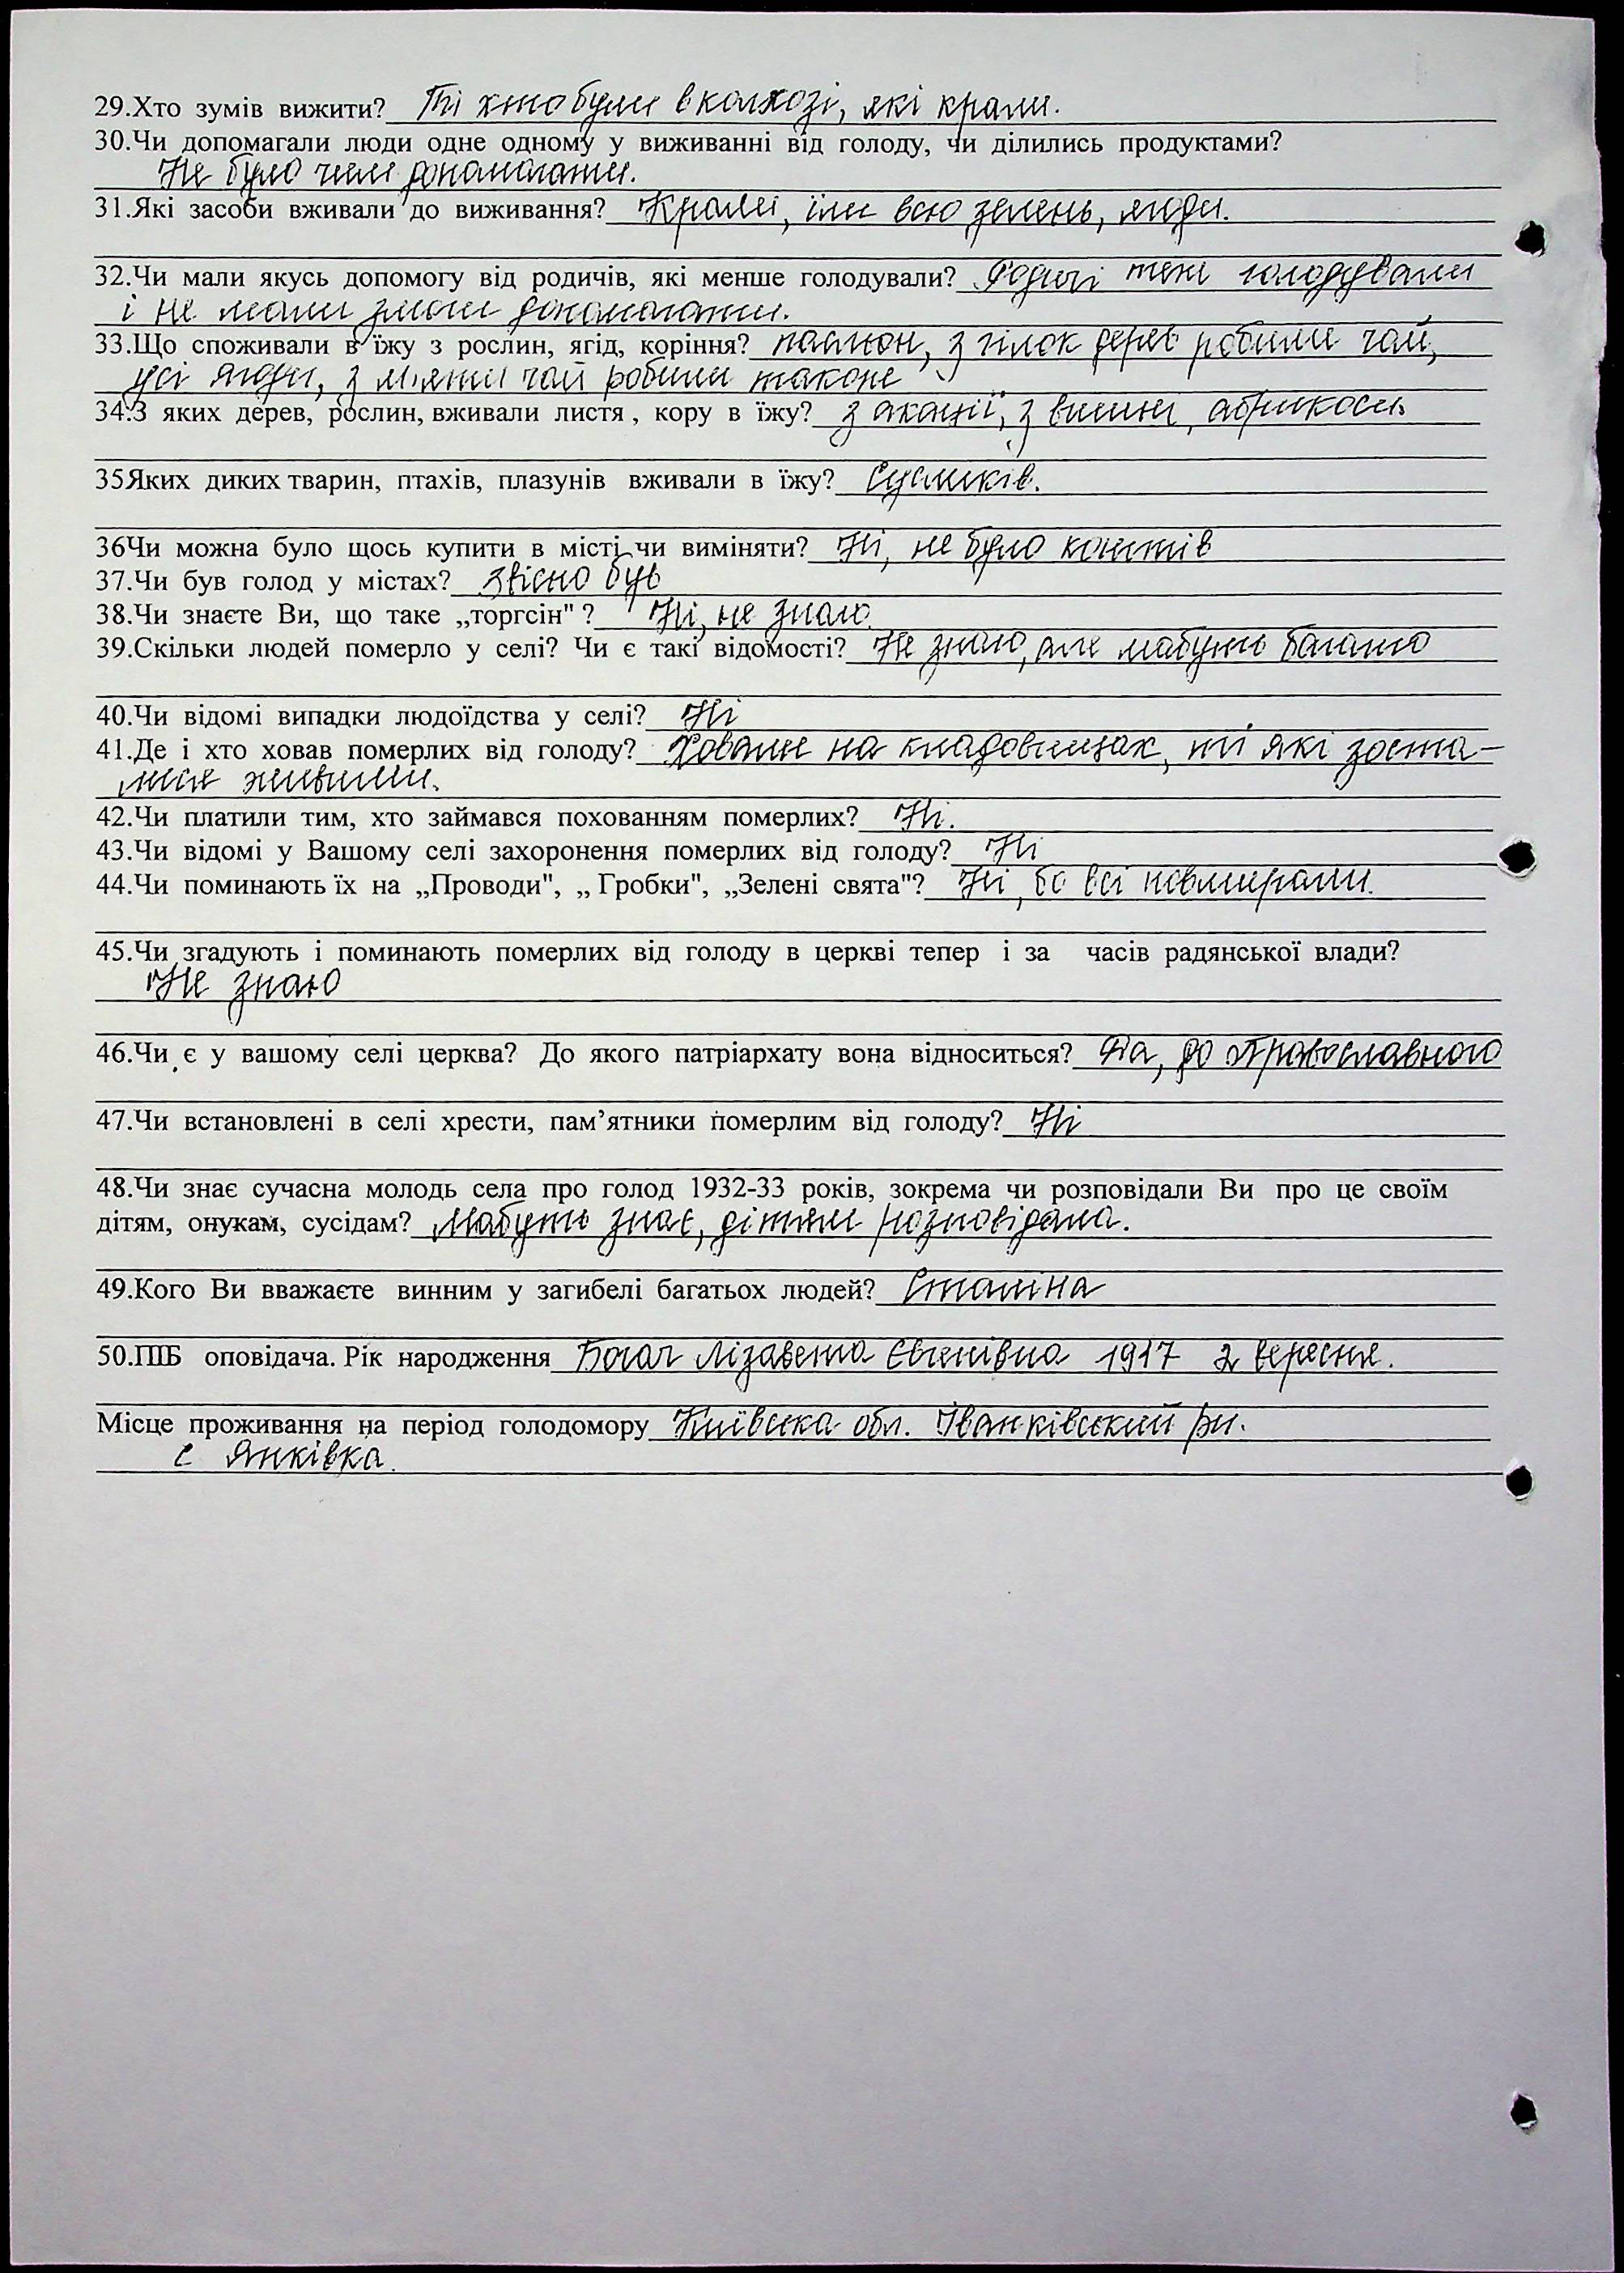 29.Хто зумів вижити? Ті хто були в колхозі, які крали.
30.Чи допомагали люди одне одному у виживанні від голоду, чи ділились продуктами?
Не було чим допомагати.
31.Які засоби вживали до виживання? Крали, їли всю зелень, ягоди.
32.Чи мали якусь допомогу від родичів, які менше голодували? Родичі теж голодували
і не мали змоги допомагати.
33.Що споживали в їжу з рослин, ягід, коріння? паслюн, з гілок дерев робили чай,
усі ягоди, з м'яти чай робили також
34.З яких дерев, рослин, вживали листя , кору в їжу? з акації, з вишні, абрикоси
35Яких диких тварин, птахів, плазунів вживали в їжу? Сусликів.
36Чи можна було щось купити в місті чи виміняти? Ні, не було коштів
37.Чи був голод у містах? звісно був
38.Чи знаєте Ви, що таке „торгсін" ? Ні, не знаю.
39.Скільки людей померло у селі? Чи є такі відомості? Не знаю, але мабуть багато
40.Чи відомі випадки людоїдства у селі? Ні
41.Де і хто ховав померлих від голоду? Ховали на кладовищах, ті які зоста-
лися живими.
42.Чи платили тим, хто займався похованням померлих? Ні.
43.Чи відомі у Вашому селі захоронення померлих від голоду? Ні
44.Чи поминають їх на „Проводи", „ Гробки", „Зелені свята"? Ні, бо всі повмирали.
45.Чи згадують і поминають померлих від голоду в церкві тепер і за часів радянської влади?
Не знаю
46.Чи є у вашому селі церква? До якого патріархату вона відноситься? Да, до Православного
47.Чи встановлені в селі хрести, пам’ятники померлим від голоду? Ні
48.Чи знає сучасна молодь села про голод 1932-33 років, зокрема чи розповідали Ви про це своїм
дітям, онукам, сусідам? Мабуть знає, дітям розповідала.
49.Кого Ви вважаєте винним у загибелі багатьох людей? Сталіна
50.ПІБ оповідача. Рік народження Богач Лізавета Євгенівна 1917 2 вересня.
Місце проживання на період голодомору Київська обл. Іванківський рн.
с Янківка.